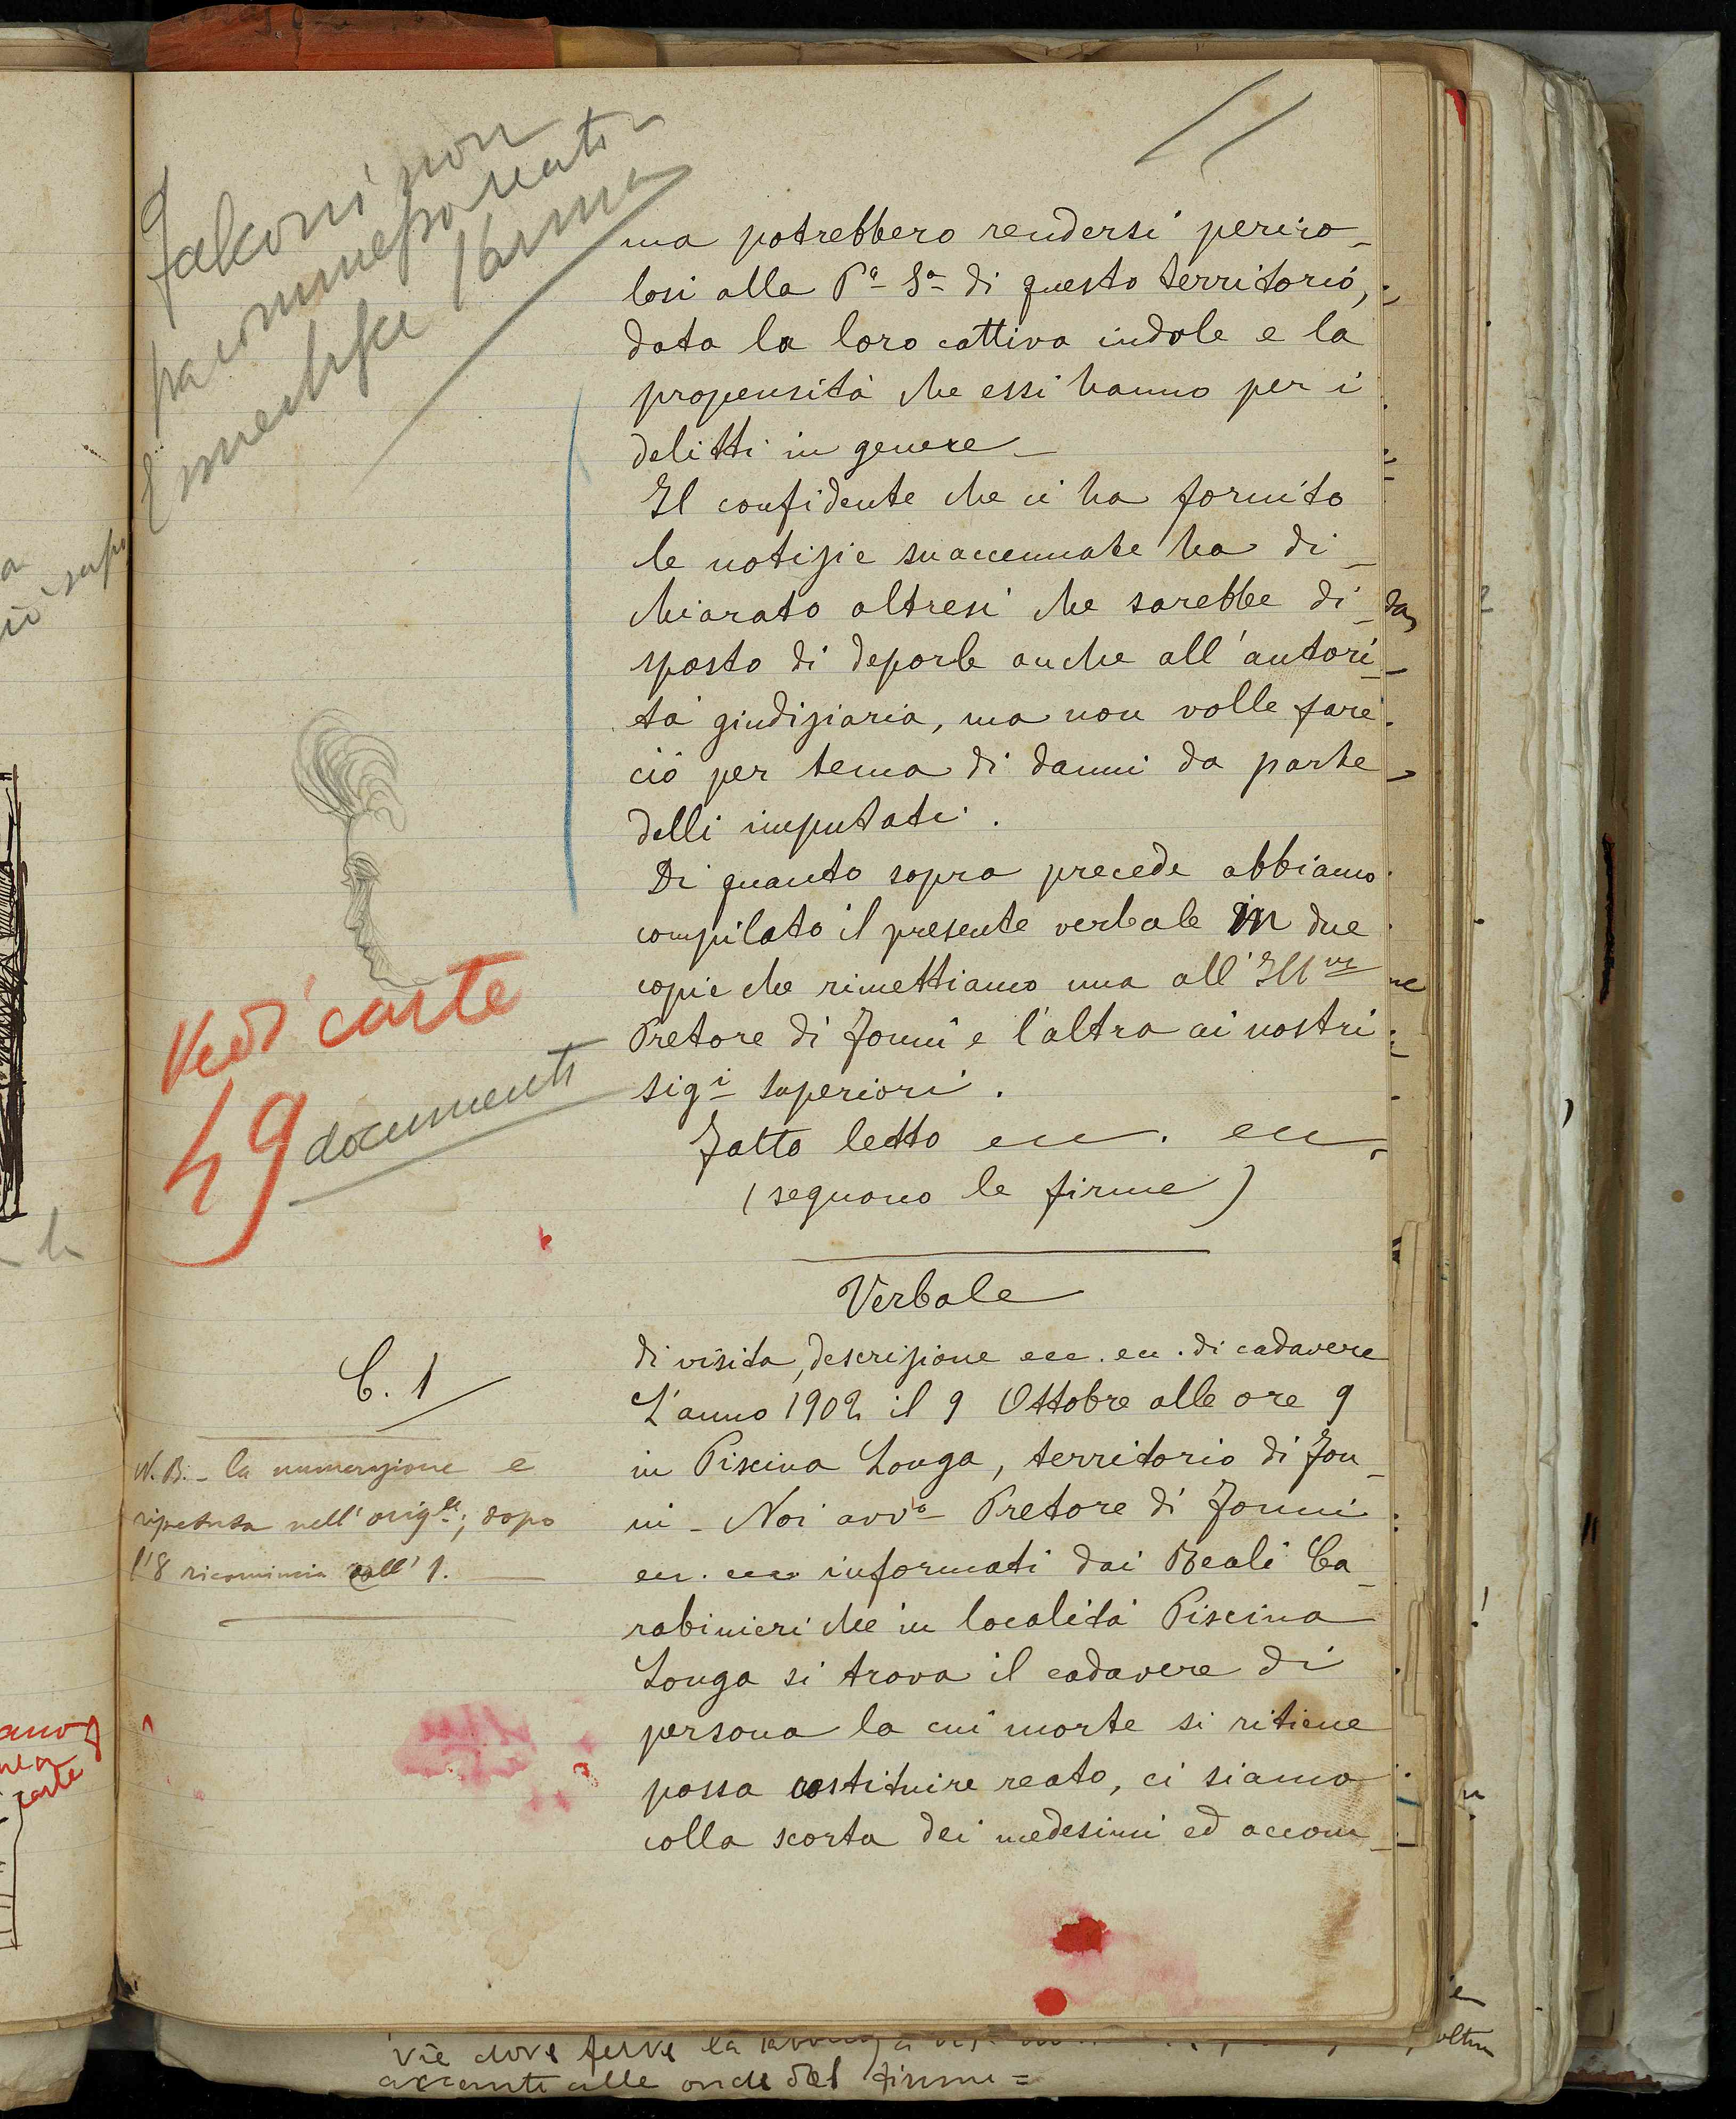 11
Falconi non
ha commesso reato
ma potrebbero rendersi perico_
losi alla Pª Sª di questo territorio,
data la loro cattiva indole e la
propensità che essi hanno per i
delitti in genere_
Il confidente che ci ha fornito
le notizie suaccennate ha di_
chiarato altresì che sarebbe di_
sposto di deporle anche all'autori_
tà giudiziaria, ma non volle fare
ciò per tema di danni da parte
delli imputati.
Di quanto sopra precede abbiamo
compilato il presente verbale in due
copie che rimettiamo una all'Illmo
Pretore di Fonni e l'altra ai nostri
sigi superiori.
Fatto letto ecc. ecc
(seguono le firme)
Vedi carte
49 documenti
Verbale
di visita, descrizione ecc. ecc. di cadavere
C. 1
L'anno 1902 il 9 Ottobre alle ore 9
in Piscina Longa, territorio di Fon_
ni _ Noi avvo Pretore di Fonni
ecc. ecc informati dai Reali Ca_
rabinieri che in località Piscina
Longa si trova il cadavere di
persona la cui morte si ritiene
possa costituire reato, ci siamo
colla scorta dei medesimi ed accom_
N.B. _ la numerazione è
ripetuta nell'origle; dopo
l'8 ricomincia coll'1.
carte
oltre
vie dove ferve la
alle onde del fiume =